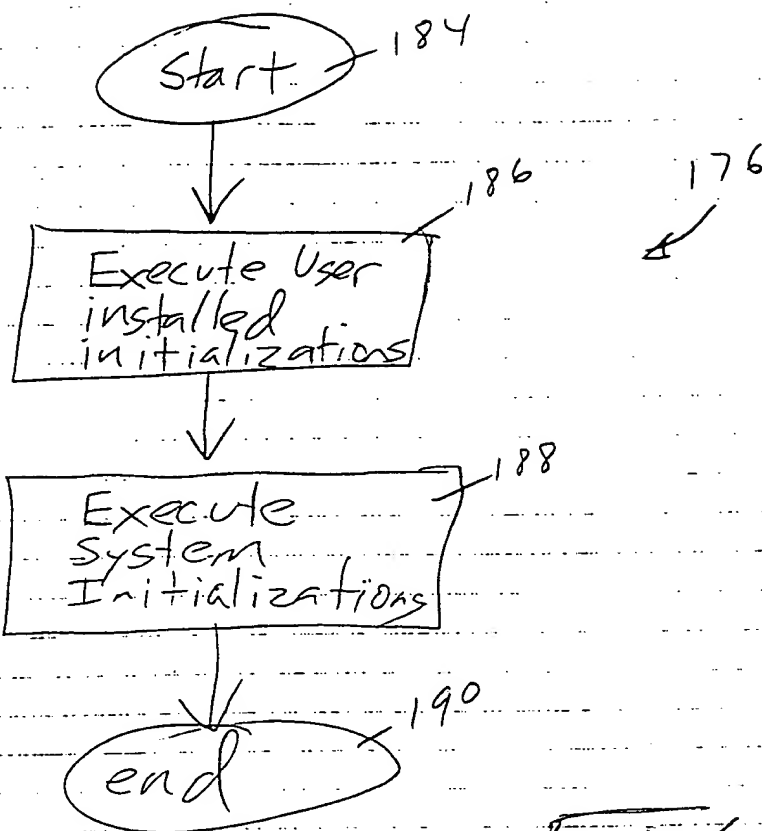 Start
184
186
176
Execute User
installed
initializations
188
Execute
System
Initializations
190
end